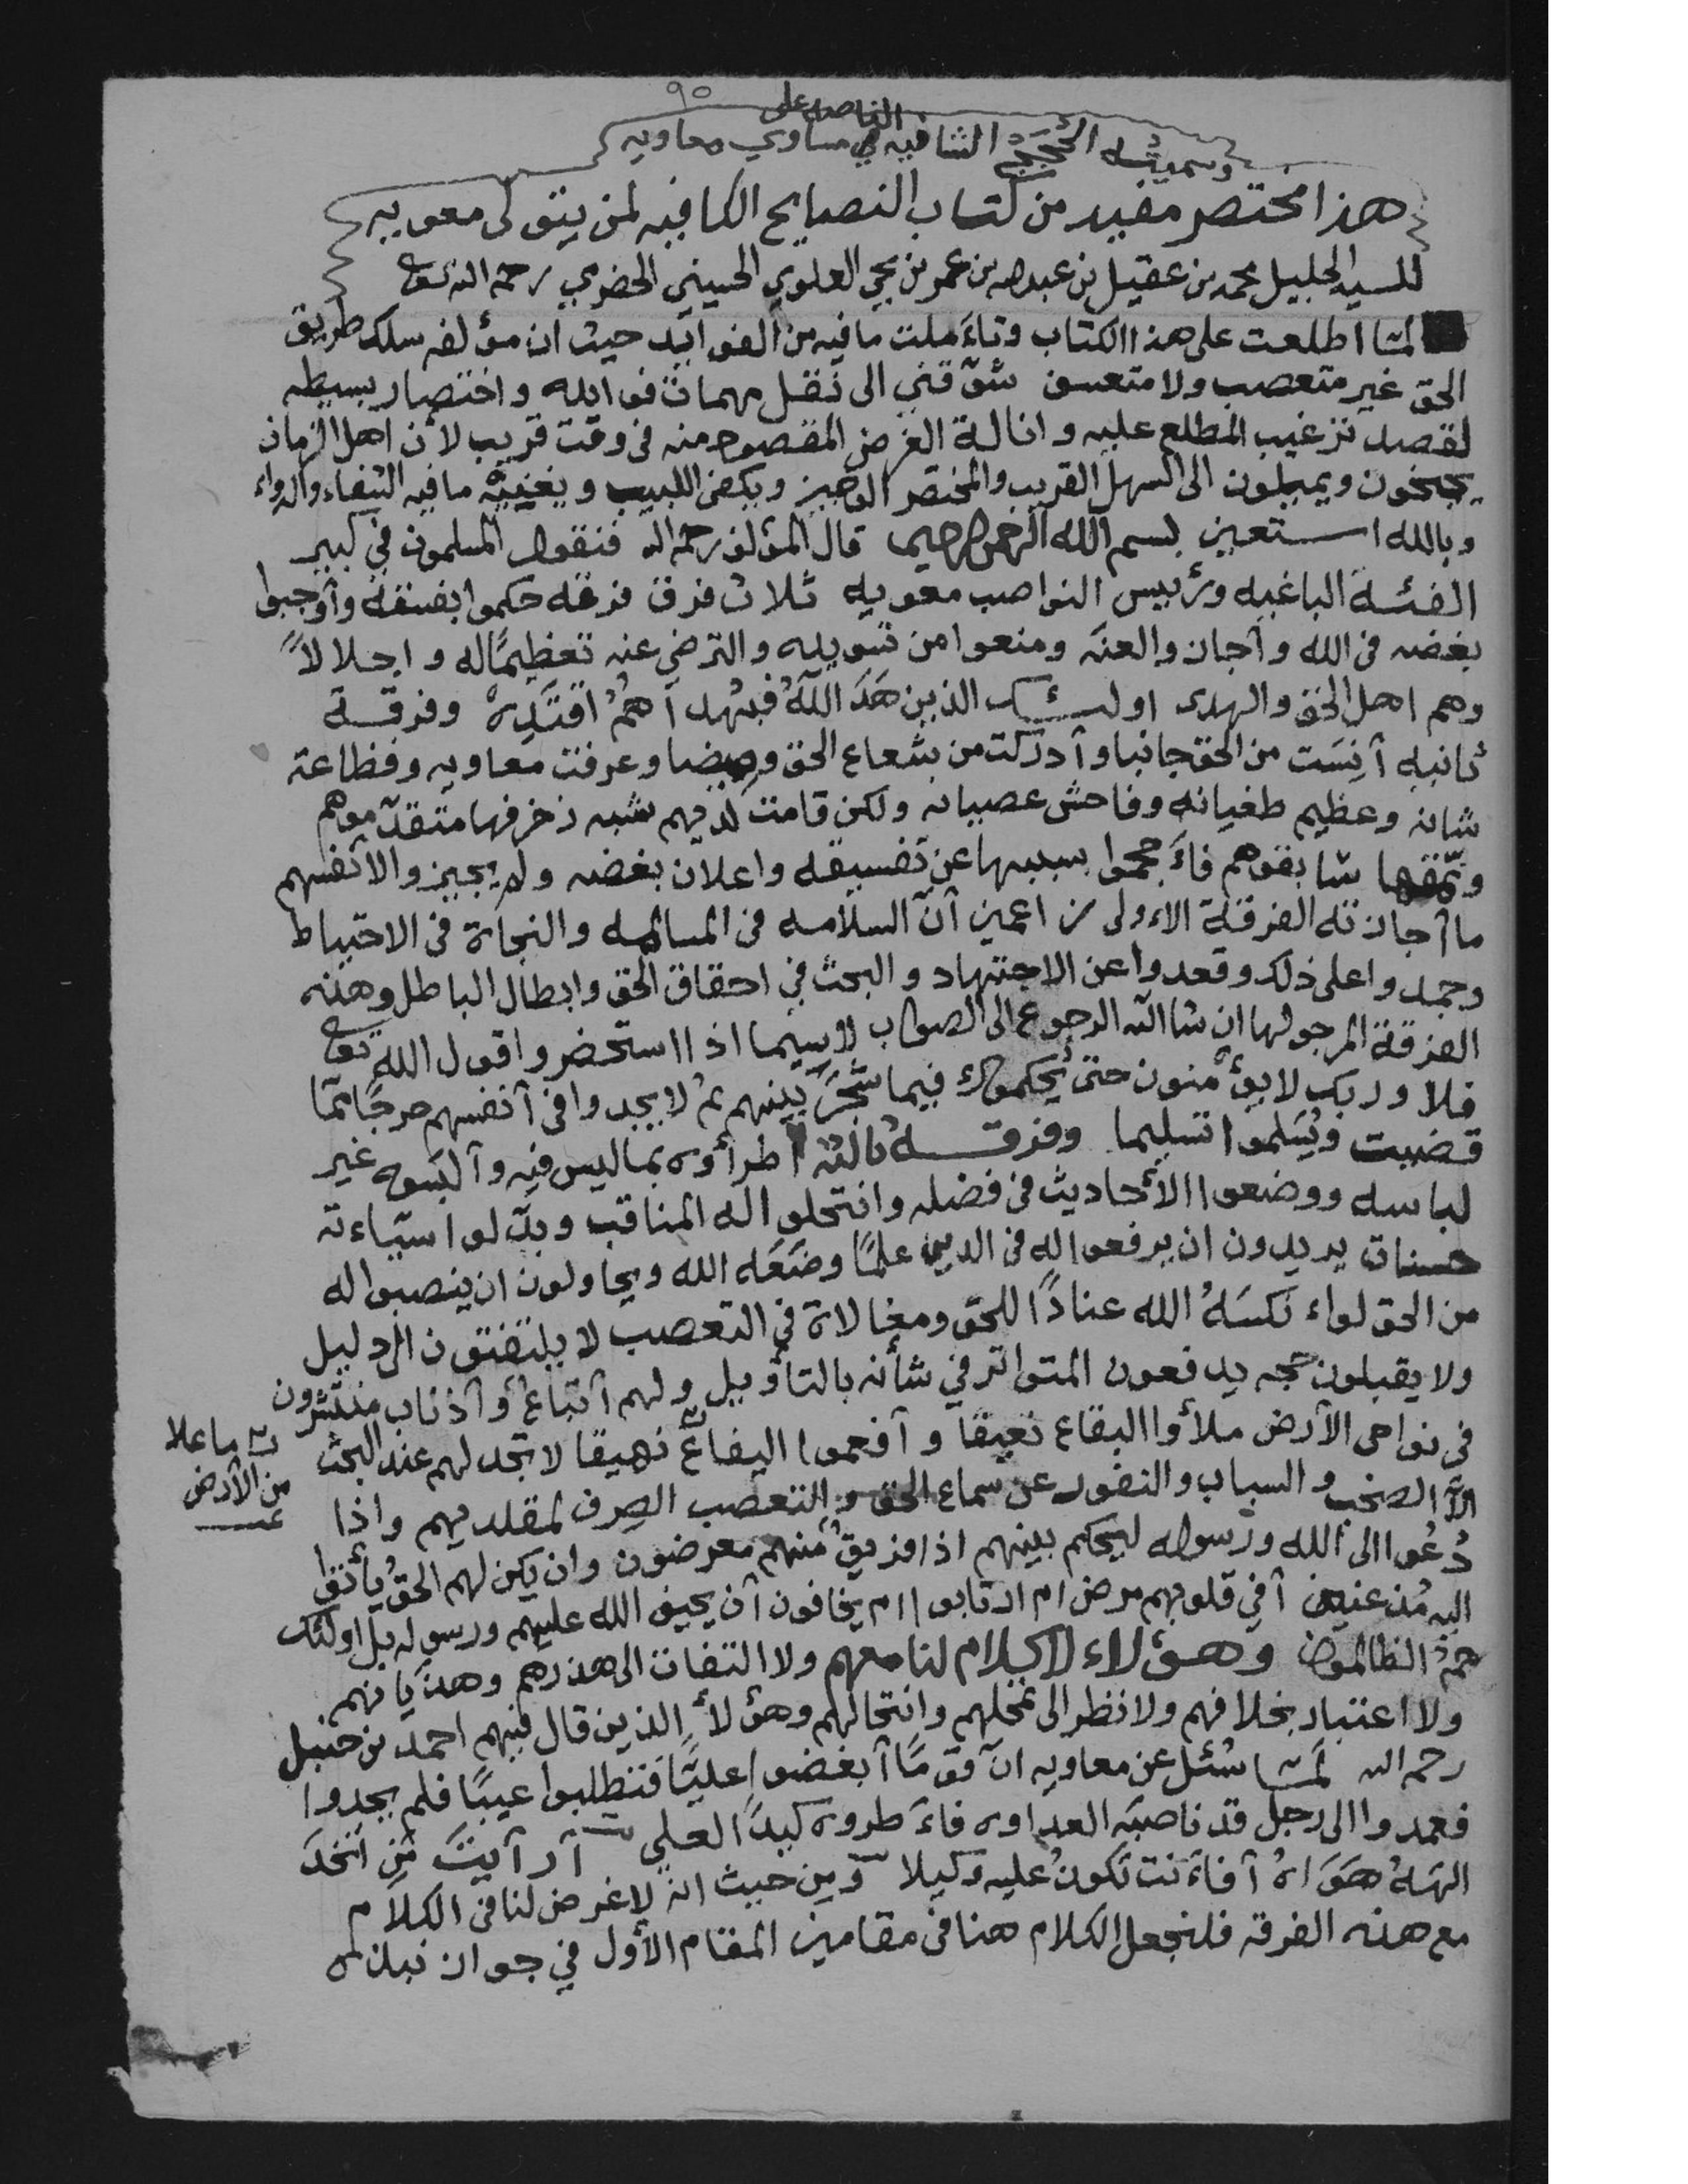 ٩٥
وسميته الحُجَجْ الشافيه في مساوي معاويه
هذا مختصر مفيد من كتاب النصايح الكافيه لمن يتولى معويه
للسيد الجليل محمد بن عقيل بن عبدالله بن عمر بن يحيى العلوي الحسيني الحضرمي رحمه الله تعالى
لمّا اطلعت على هذا الكتاب وتأملت ما فيه من الفوائد حيث ان مؤلفه سلك طريق
الحق غير متعصب ولا متعسف شوّقني الى نقل مهمات فوايده واختصار بسيطه
لقصد ترغيب المطلع عليه وانالة الغرض المقصود منه في وقت قريب لأن اهل الزمان
يجنحون ويميلون الى السهل القريب والمختصر الوجيز ويكفي اللبيب ويغنيه ما فيه الشفاء والدواء
وبالله استعين بسم الله الرحمن الرحيم قال المؤلف رحمه الله فنقول المسلمون في كبير
الفئة الباغيه ورئيس النواصب معويه ثلاث فرق فرقه حكموا بفسقه وأوجبوا
بغضه في الله وأجازوا لعنه ومنعوا من تسويده والترضي عنه تعظيمًا له واجلالاً
وهم اهل الحق والهدى اولئك الذين هَدَ اللهُ فبهداهُمُ اقتَدِهْ وفرقة
ثانيه آنِسَت من الحق جانبا وأدركت من شعاع الحق وميضا وعرفت معاويه وفظاعة
شانه وعظيم طغيانه وفاحش عصيانه ولكن قامت لديهم شبه زخرفها متقدموهم
ونمّقها سابقوهم فأحجموا بسببها عن تفسيقه واعلان بغضه ولم يجيزوا لانفسهم
ما أجازته الفرقة الاولى زاعمين أنّ السلامه في المسالمه والنجاة في الاحتياط
وجمدوا على ذلك وقعدوا عن الاجتهاد والبحث في احقاق الحق وابطال الباطل وهذه
الفرقة المرجو لها ان شا الله الرجوع الى الصواب لاسيما اذا استحضروا قول الله تعالى
فلا وربك لا يؤمنون حتى يُحكموك فيما شَجَرَ بينهم ثم لا يجدوا في أنفسهم حرجًا ممّا
قضيت ويُسَلموا تسليما وفرقة ثالثه اطرأوه بما ليس فيه وألبَسوه غير
لباسه ووضعوا الأحاديث في فضله وانتحلوا له المناقب وبدّلوا سيّاءته
حسنات يريدون ان يرفعوا له في الدين علمًا وضَعَه الله ويحاولون ان ينصبوا له
من الحق لواء نَكسَهُ الله عنادًا للحق ومغالاة في التعصب لا يلتفتون الى دليل
ولا يقبلون حجه يدفعون المتواتر في شأنه بالتأويل ولهم أتباعٌ وأذناب منتشرون
في نواحي الأرض ملأوا البقاع نعيقا وأفعموا اليفاع نهيقا لا تجد لهم عند البحث
ما علا
من الأرض
الاّ الصخب والسباب والنفور عن سماع الحق والتعصب الصِرف لمقلديهم واذا
دُعُوا الى الله ورسوله ليحكم بينهم اذا فريقٌ منهم معرضون وان يكن لهم الحقُ يأتوا
اليه مُذعنين أفي قلوبهم مرض ام ارتابوا ام يخافون أن يحيف الله عليهم ورسوله بل اولئك
همُ الظالمون وهؤلاء لا كلام لنا معهم ولا التفات الى هذرهم وهذيانهم
ولا اعتبار بخلافهم ولا نظر الى نحلهم وانتحالهم وهؤلأ الذين قال فيهم احمد بن حنبل
رحمه الله لمّا سُئل عن معاويه انّ قومًا أبغضوا عليًّا فتطلبوا عيبًا فلم يجدوا
فعمدوا الى رجل قد ناصبَه العداوه فأطروه كيدًا لعلي أرأيتَ مَنِ اتخذَ
الهَهُ هَوَاهُ أفأنت تكونُ عليه وكيلا ومن حيث انه لا غرض لنا في الكلام
مع هذه الفرقه فلنجعل الكلام هنا في مقامين المقام الأول في جواز